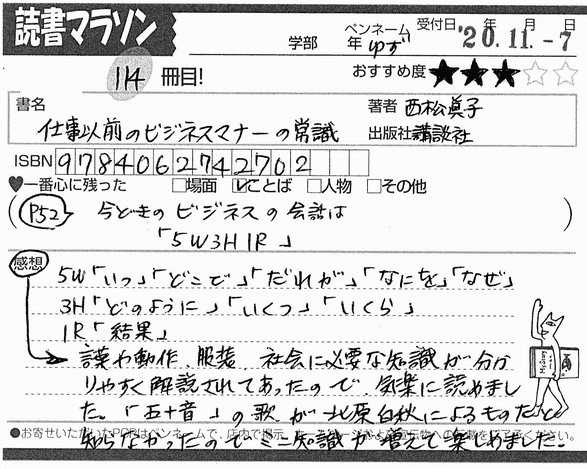 読書マラソン
学部 年 ペンネーム ゆず 受付日 年 月 日 '20.11.-7
114 冊目! おすすめ度 ★★★☆☆
書名 著者 西松眞子
仕事以前のビジネスマナーの常識 出版社 講談社
ISBN 9784062742702
♥一番心に残った □場面 ☑ことば □人物 □その他
(P52) 今どきのビジネスの会話は
「5W3H1R」
感想
5W「いつ」「どこで」「だれが」「なにを」「なぜ」
3H「どのように」「いくつ」「いくら」
1R「結果」
言葉や動作、服装、社会に必要な知識が分か
りやすく解説されてあったので、気楽に読めまし
た。「五十音」の歌が北原白秋によるものだと
●お寄せいただいたPOPはペンネームで、店内で掲示
知らなかったのでミニ知識が増えて楽しめました。